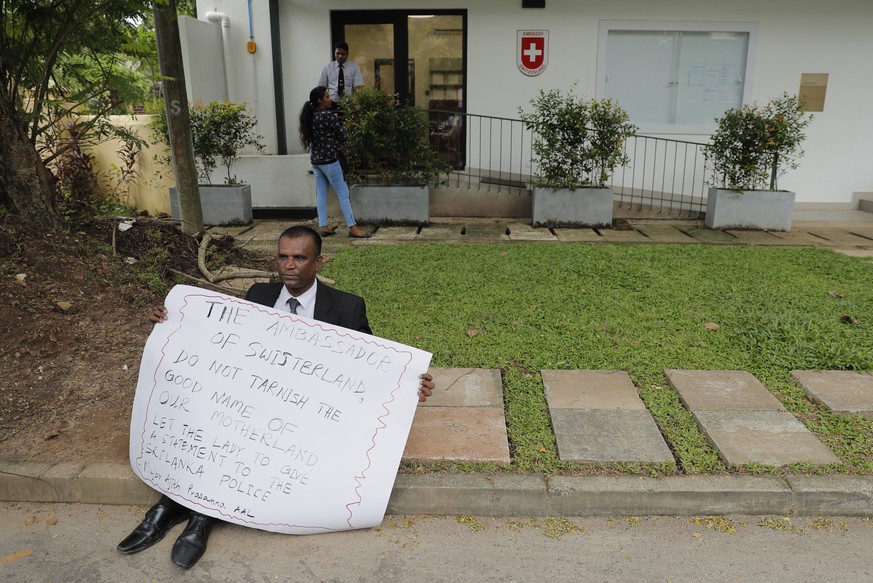 EMBASSY
THE AMBASSADOR
OF SWISTERLAND,
DO NOT TARNISH THE
GOOD NAME OF
OUR MOTHERLAND
LET THE LADY TO GIVE
A STATEMENT TO THE
SRILANKA POLICE
Ajith Prasanna AAL